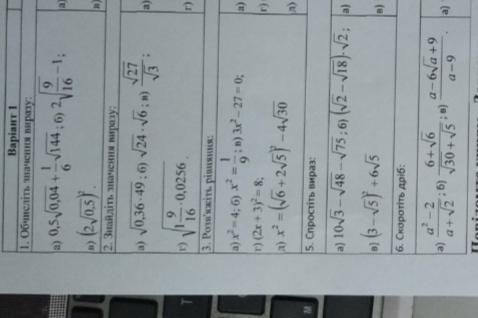 Варіант 1
1. Обчисліть значення виразу:
а) 0,5√0,04 + 1/6 √144 ; б) 2√(9/16) − 1 ;
в) (2√0,5)² .
2. Знайдіть значення виразу:
а) √(0,36·49) ; б) √24 · √6 ; в) √27/√3 ;
г) √(1 9/16 · 0,0256) .
3. Розв'яжіть рівняння:
а) x² = 4; б) x² = 1/9 ; в) 3x² − 27 = 0;
г) (2x + 3)² = 8;
д) x² = (√6 + 2√5)² − 4√30
5. Спростіть вираз:
а) 10√3 − √48 − √75 ; б) (√2 − √18)·√2 ;
в) (3 − √5)² + 6√5
6. Скоротіть дріб:
а) (a² − 2)/(a + √2) ; б) (6 + √6)/(√30 + √5) ; в) (a − 6√a + 9)/(a − 9)
а)
в)
а)
г)
а)
г)
д)
а)
в)
а)